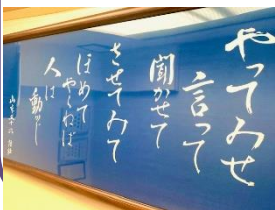 やってみせ
言って
聞かせて
させてみて
ほめて
やらねば
人は
動かじ